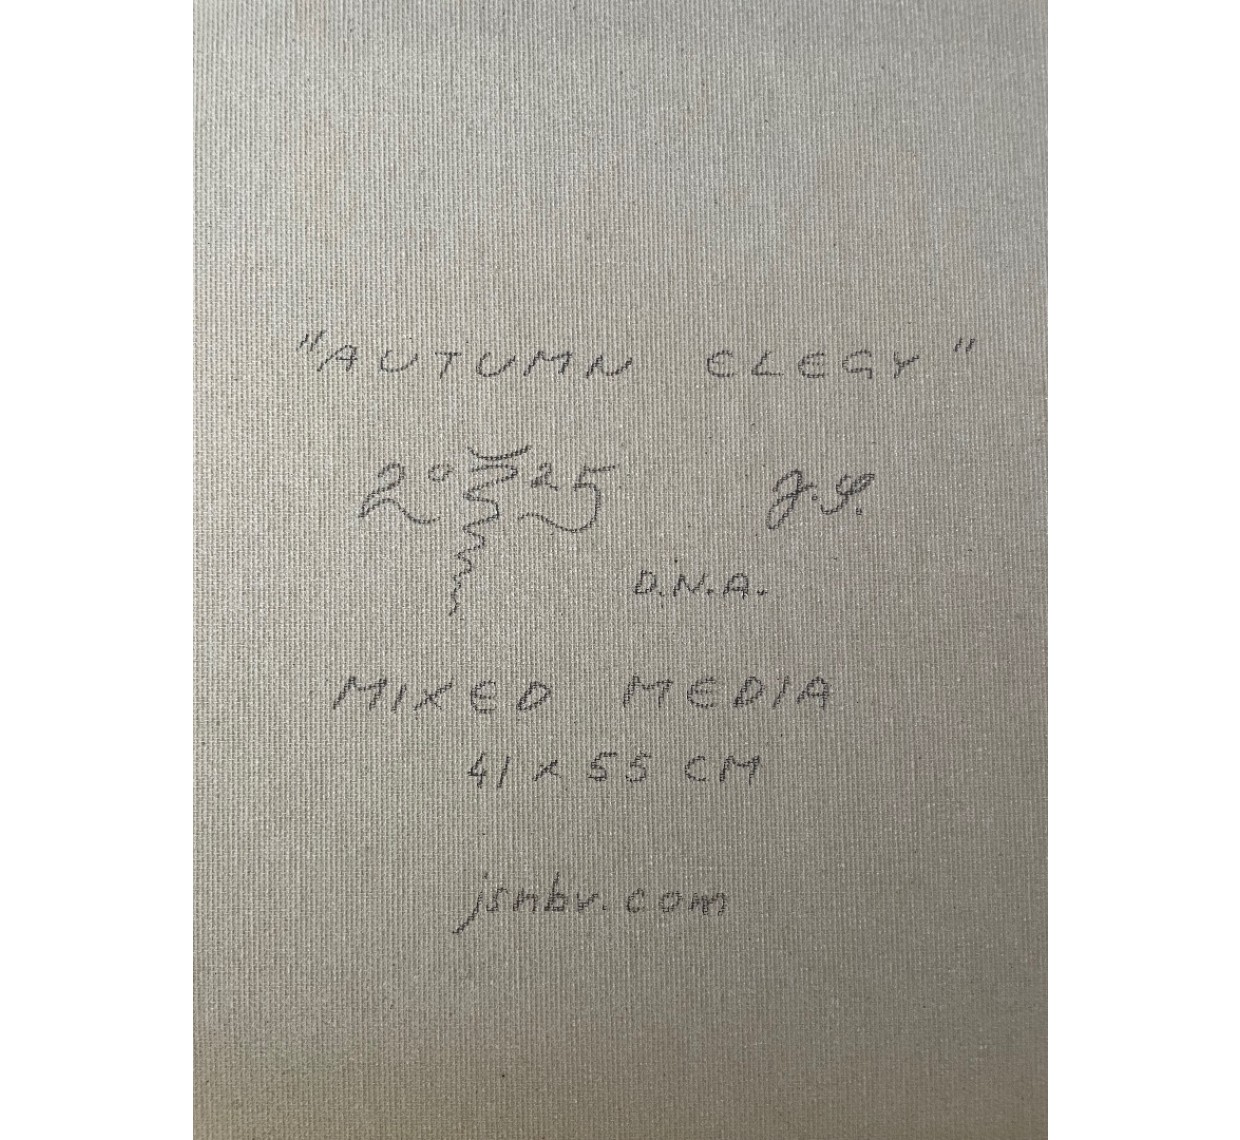 "AUTUMN ELEGY"
2025 J.S.
D.N.A.
MIXED MEDIA
41 x 55 CM
jsnbv.com